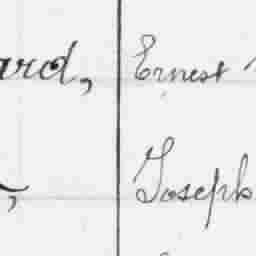 ard, Ernest
, Joseph